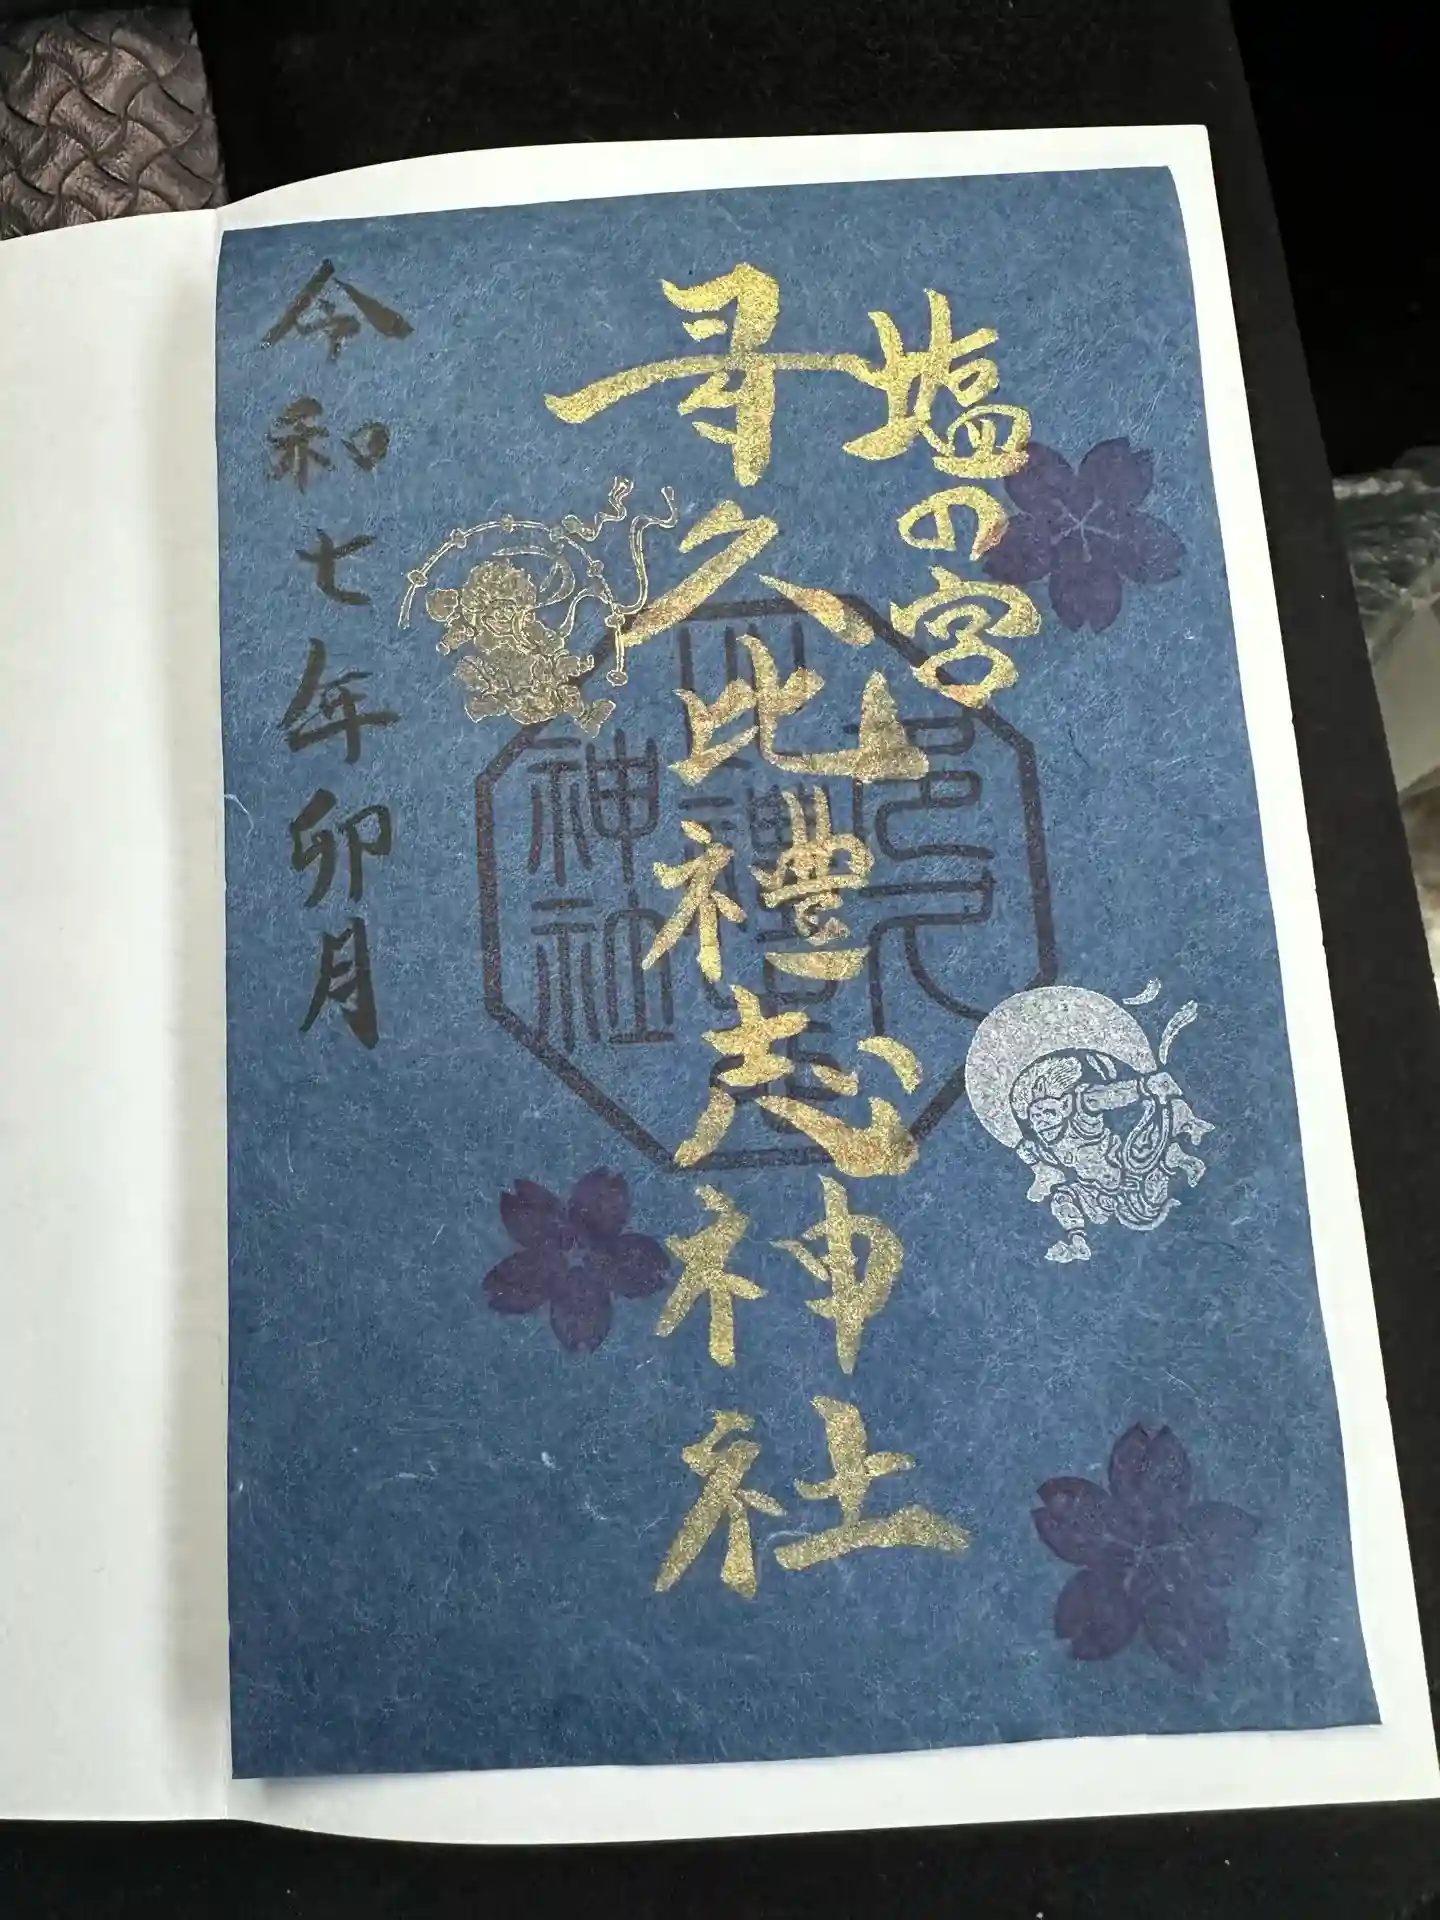 塩の宮
多久比禮志神社
多久
比禮志
神社
令和七年卯月